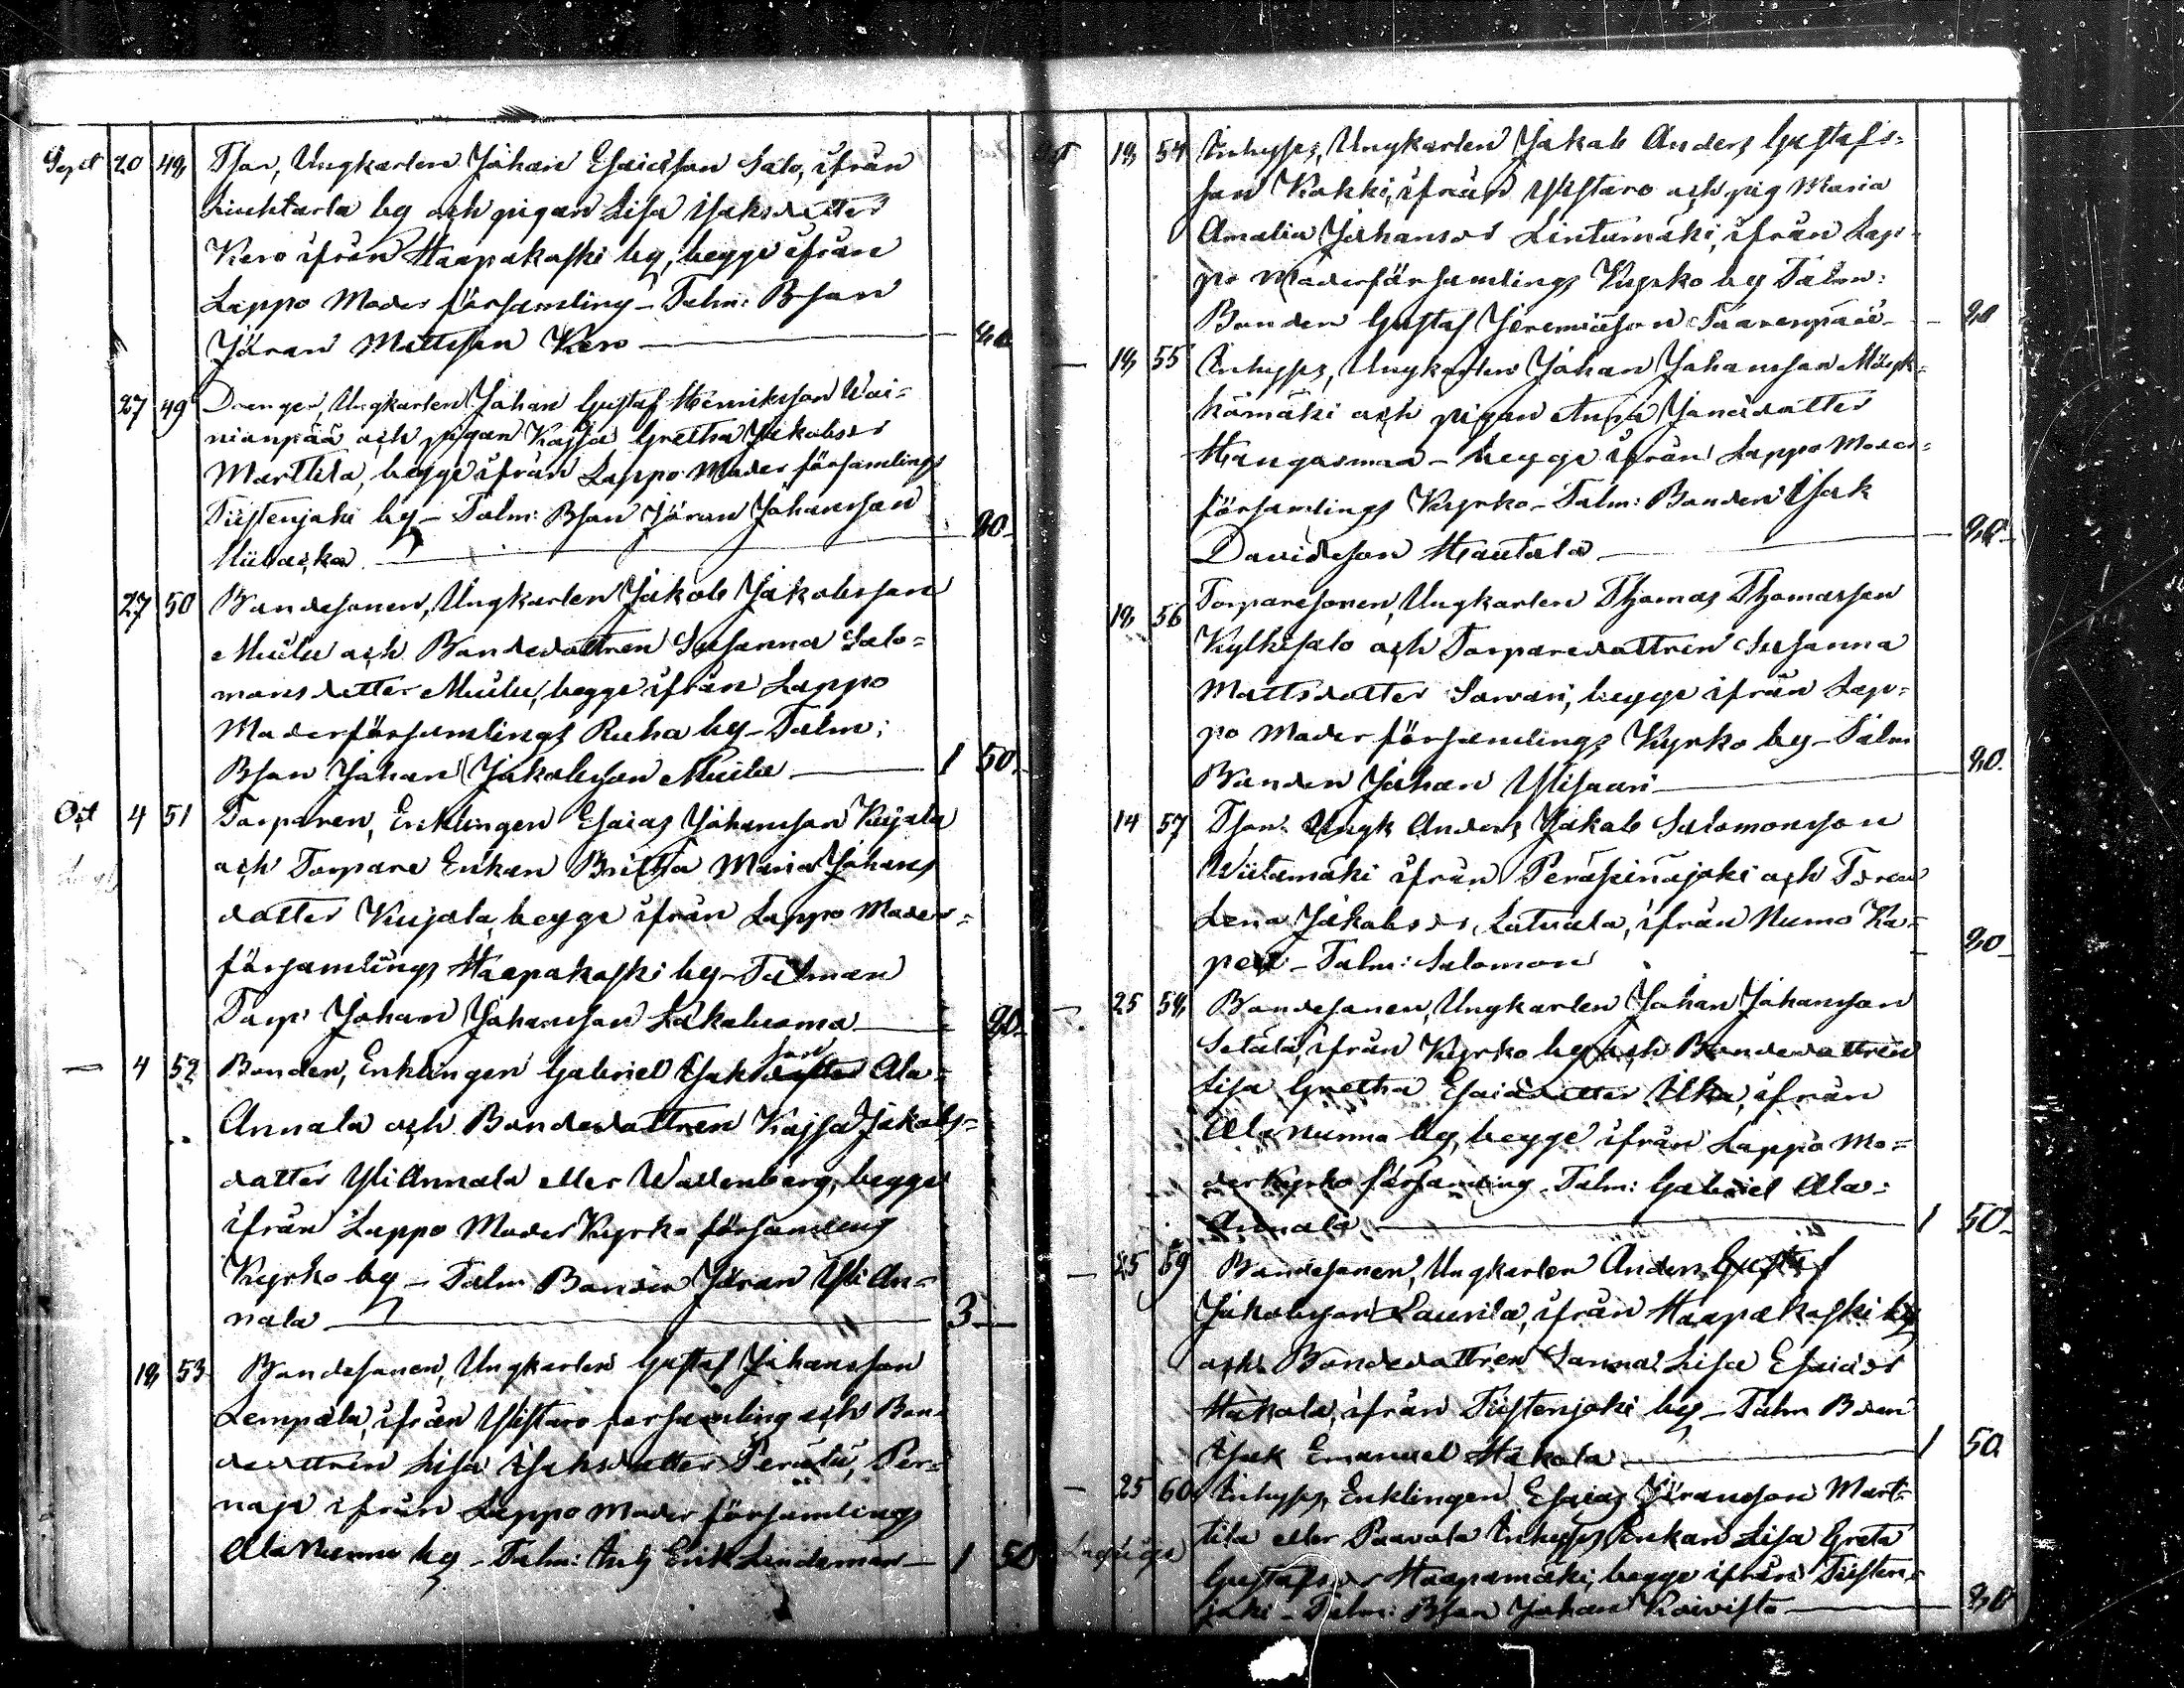 Sept 20 48 Tson, Ungkarlen Johan Esaiasson Salo, ifrån
Liuhtarla by och pigan Lisa Isaksdotter
Kero ifrån Haapakoski by, begge ifrån
Lappo Moder församling - Talm: Bson
Jöran Mattsson Kero 80
27 49 Drengen, Ungkarlen Johan Gustaf Henriksson Wai-
nionpää och pigan Kajsa Gretha Jakobsdr
Marttila, begge ifrån Lappo Moder församlings
Tiistenjoki by - Talm: Bson Jöran Johansson
80
27 50 Bondesonen, Ungkarlen Jakob Jakobsson
Muilu och Bondedottren Susanna Salo-
monsdotter Muilu, begge ifrån Lappo
Moderförsamlings Ruha by - Talm:
Bson Johan Jakobsson Muilu 1 50
Oct 4 51 Torparen, Enklingen Esaias Johansson Kujala
och Torpare Enkan Britha Maria Johans
dotter Kujala, begge ifrån Lappo Moder-
församlings Haapakoski by - Talman
Torp: Johan Johansson Lakaluoma 80
— 4 52 Bonden, Enklingen Gabriel Isaksson Ala-
Annala och Bondedottren Kajsa Jakobs-
dotter YliAnnala eller Wallenberg, begge
ifrån Lappo Moder Kyrko församling
Kyrko by - Talm Bonden Jöran Yli An-
nala 3 —
18 53 Bondesonen, Ungkarlen Gustaf Johansson
Lempala, ifrån Ylistaro församling och Bon-
dedottren Lisa Isaksdotter Perälä, Per-
naje ifrån Lappo Moder församlings
AlaNurmo by - Talm: Inh Erik Lindeman 1 50
Oct 18 54 Inhyses, Ungkarlen Jakob Anders Gustafs-
son Kokki, ifrån Ylistaro och pig Maria
Amalia Johansdr Lintumäki, ifrån Lap-
po Moderförsamlings Kyrko by Talm:
Bonden Gustaf Jeremiasson Saarenpää 80
— 18 55 Inhyses, Ungkarlen Johan Johansson
kömäki och pigan Anna Jonasdotter
Hangasmaa - begge ifrån Lappo Moder-
församlings Kyrko - Talm: Bonden Isak
Davidsson Hautala 80
18 56 Torparesonen, Ungkarlen Thomas Thomasson
Kylkisalo och Torparedottren Susanna
Mattsdotter Sawari, begge ifrån Lap-
po Moder församlings Kyrko by - Talm
Bonden Johan Ylisaari 80
14 57 Tson Ungk Anders Jakob Salomonsson
Wiitamäki ifrån Peräseinäjoki och
Lena Jakobsdr, Latvala, ifrån Nurmo Ka-
pell - Talm: Salomon 80
25 58 Bondesonen, Ungkarlen Johan Johansson
Setälä, ifrån Kyrko by och Bondedottren
Lisa Gretha Esaiadotter Ilka, ifrån
Ala Nurmo by, begge ifrån Lappo Mo-
derkyrko församling Talm: Gabriel Ala-
Annala 1 50
— 25 59 Bondesonen, Ungkarlen Anders Gustaf
Jakobsson Laurila, ifrån Haapakoski by
och Bondedottren Sanna Lisa Esaiasdr
Hakola, ifrån Tiistenjoki by - Talm Bson
Isak Emanuel Hakola 1 50
— 25 60 Inhyses, Enklingen Esaias Jöransson Mart-
tila eller Paavola Inhyses Enkan Lisa Greta
Gustafsdr Haapamäki, begge ifrån Tiisten-
joki - Talm: Bson Johan Koivisto 80